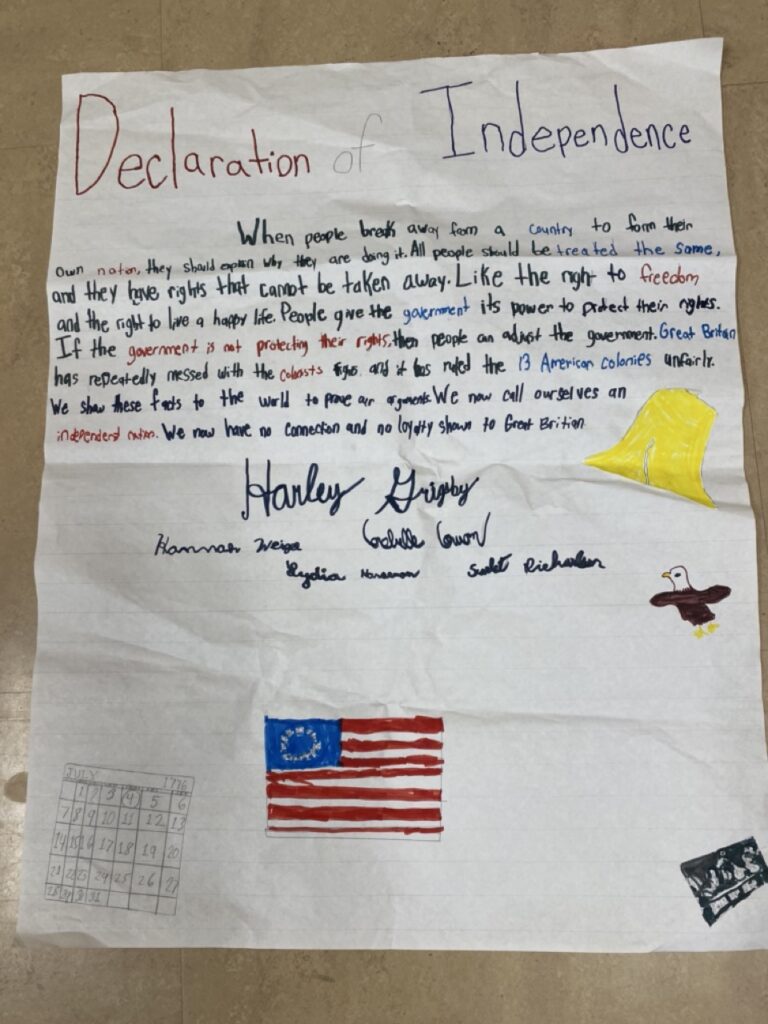 Declaration of Independence
When people break away from a country to form their
own nation, they should explain why they are doing it. All people should be treated the same,
and they have rights that cannot be taken away. Like the right to freedom
and the right to live a happy life. People give the government its power to protect their rights.
If the government is not protecting their rights, then people can adjust the government. Great Britain
has repeatedly messed with the and it has ruled the 13 American colonies unfairly.
We show these facts to the world to prove our arguments. We now call ourselves an
independent nation. We now have no connection and no loyalty shown to Great Britian
Harley Grigsby
Hannah
Lydia
JULY 1776
1 2 3 4 5 6
7 8 9 10 11 12 13
14 15 16 17 18 19 20
21 22 23 24 25 26 27
28 29 30 31